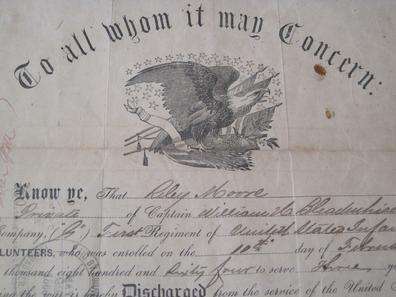 To all whom it may Concern:
Know ye, That Riley Moore
Private of Captain William H.
Company, (G) First Regiment of United States Infan
LUNTEERS, who was enrolled on the 10th day of Februa
thousand eight hundred and sixty four to serve three ye
Discharged from the service of the United S